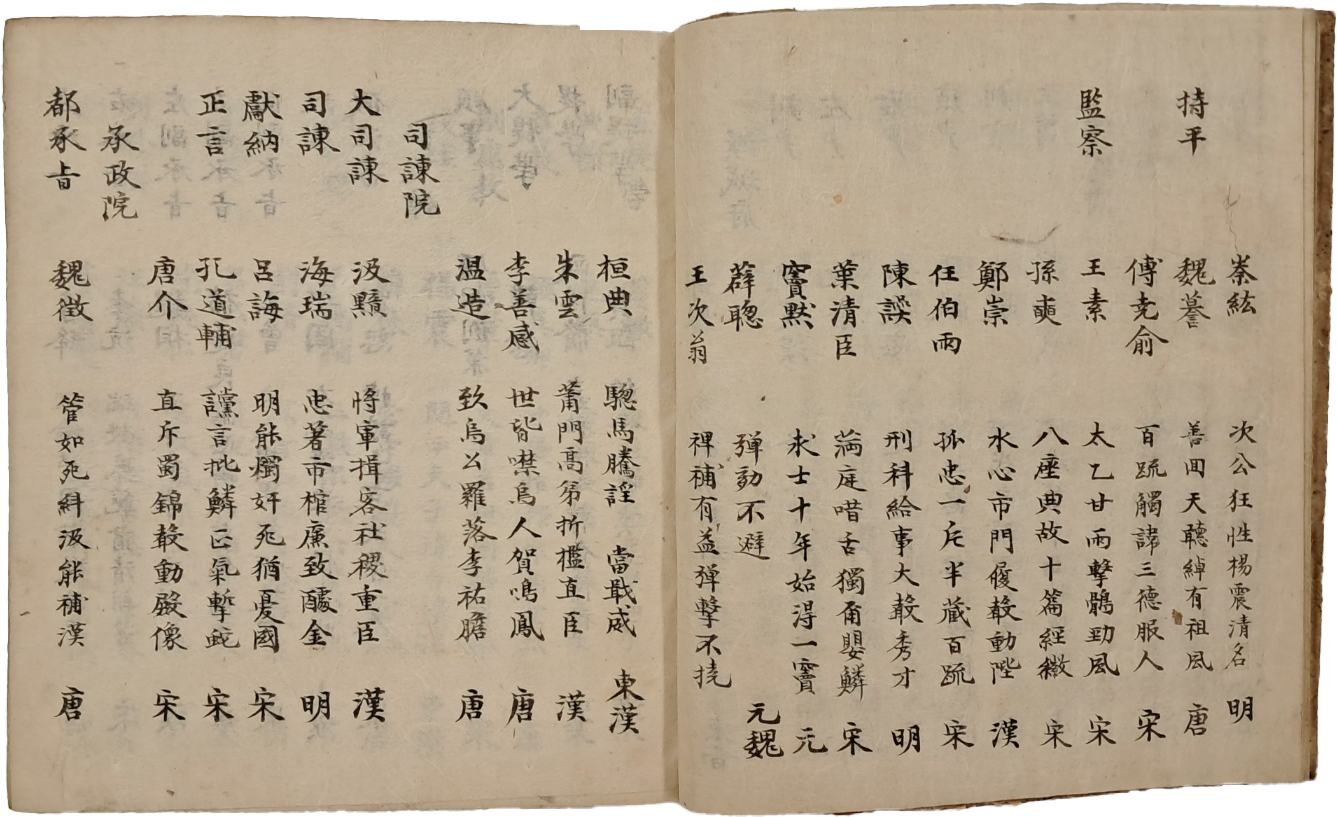 秦紘 次公狂性楊震清名 明
持平 魏謩 善聞天聽綽有祖風 唐
傅堯俞 百䟽觸諱三德服人 宋
監察 王素 太乙甘雨擊鶻勁風 宋
孫奭 八座典故十篇經緻 宋
鄭崇 水心市門履聲動陛 漢
任伯雨 孤忠一斥半歲百䟽 宋
陳諤 刑科給事大聲秀才 明
葉清臣 滿庭啫舌獨甭嬰鱗 宋
竇默 求士十年始得一竇 元
薛聰 彈劾不避 元魏
王次翁 裨補有益彈擊不撓
桓典 驄馬騰諠 當戢威 東漢
朱雲 莆門高弟折檻直臣 漢
李善感 世皆噤烏人賀鳴鳳 唐
温造 致烏公羅落李祐膽 唐
司諫院
大司諫 汲黯 將軍揖客社稷重臣 漢
司諫 海瑞 忠著市棺廉致醵金 明
獻納 呂誨 明能燭奸死猶憂國 宋
正言 孔道輔 讜言批鱗正氣擊蛇 宋
唐介 直斥蜀錦聲動殿像 宋
承政院
都承旨 魏徵 管如死糾汲能補漢 唐